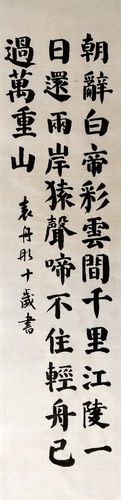 朝辭白帝彩雲間千里江陵一
日還兩岸猿聲啼不住輕舟已
過萬重山
袁舟彤十歲書